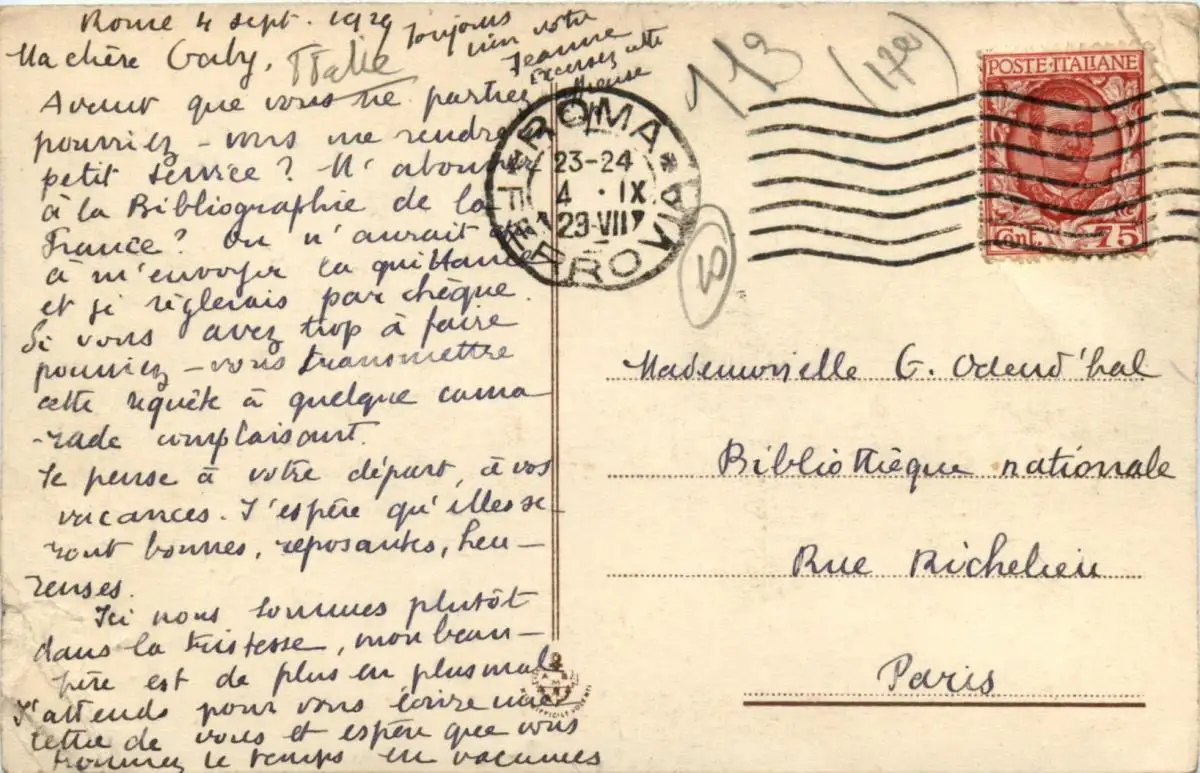 Rome 4 sept. 1929
Ma chère Gaby,
Avant que vous ne partiez
pourriez-vous me rendre
petit service? M'abonner
à la Bibliographie de la
France? On n'aurait
à m'envoyer la quittance
et je règlerais par chèque.
Si vous avez trop à faire
pourriez-vous transmettre
cette requête à quelque cama
-rade complaisant.
Je pense à votre départ, à vos
vacances. J'espère qu'elles se-
ront bonnes, reposantes, heu-
reuses.
Ici nous sommes plutôt
dans la tristesse, mon beau-
père est de plus en plus mal
J'attends pour vous écrire une
lettre de vous et espère que vous
trouverez le temps en vacances
Toujours
bien votre
Jeanne
Excusez cette
Italie
113
(170)
10
ROMA
FERROVIA
23-24
4 · IX
29-VII
POSTE·ITALIANE
Cent. 75
Mademoiselle G. Odend'hal
Bibliothèque nationale
Rue Richelieu
Paris